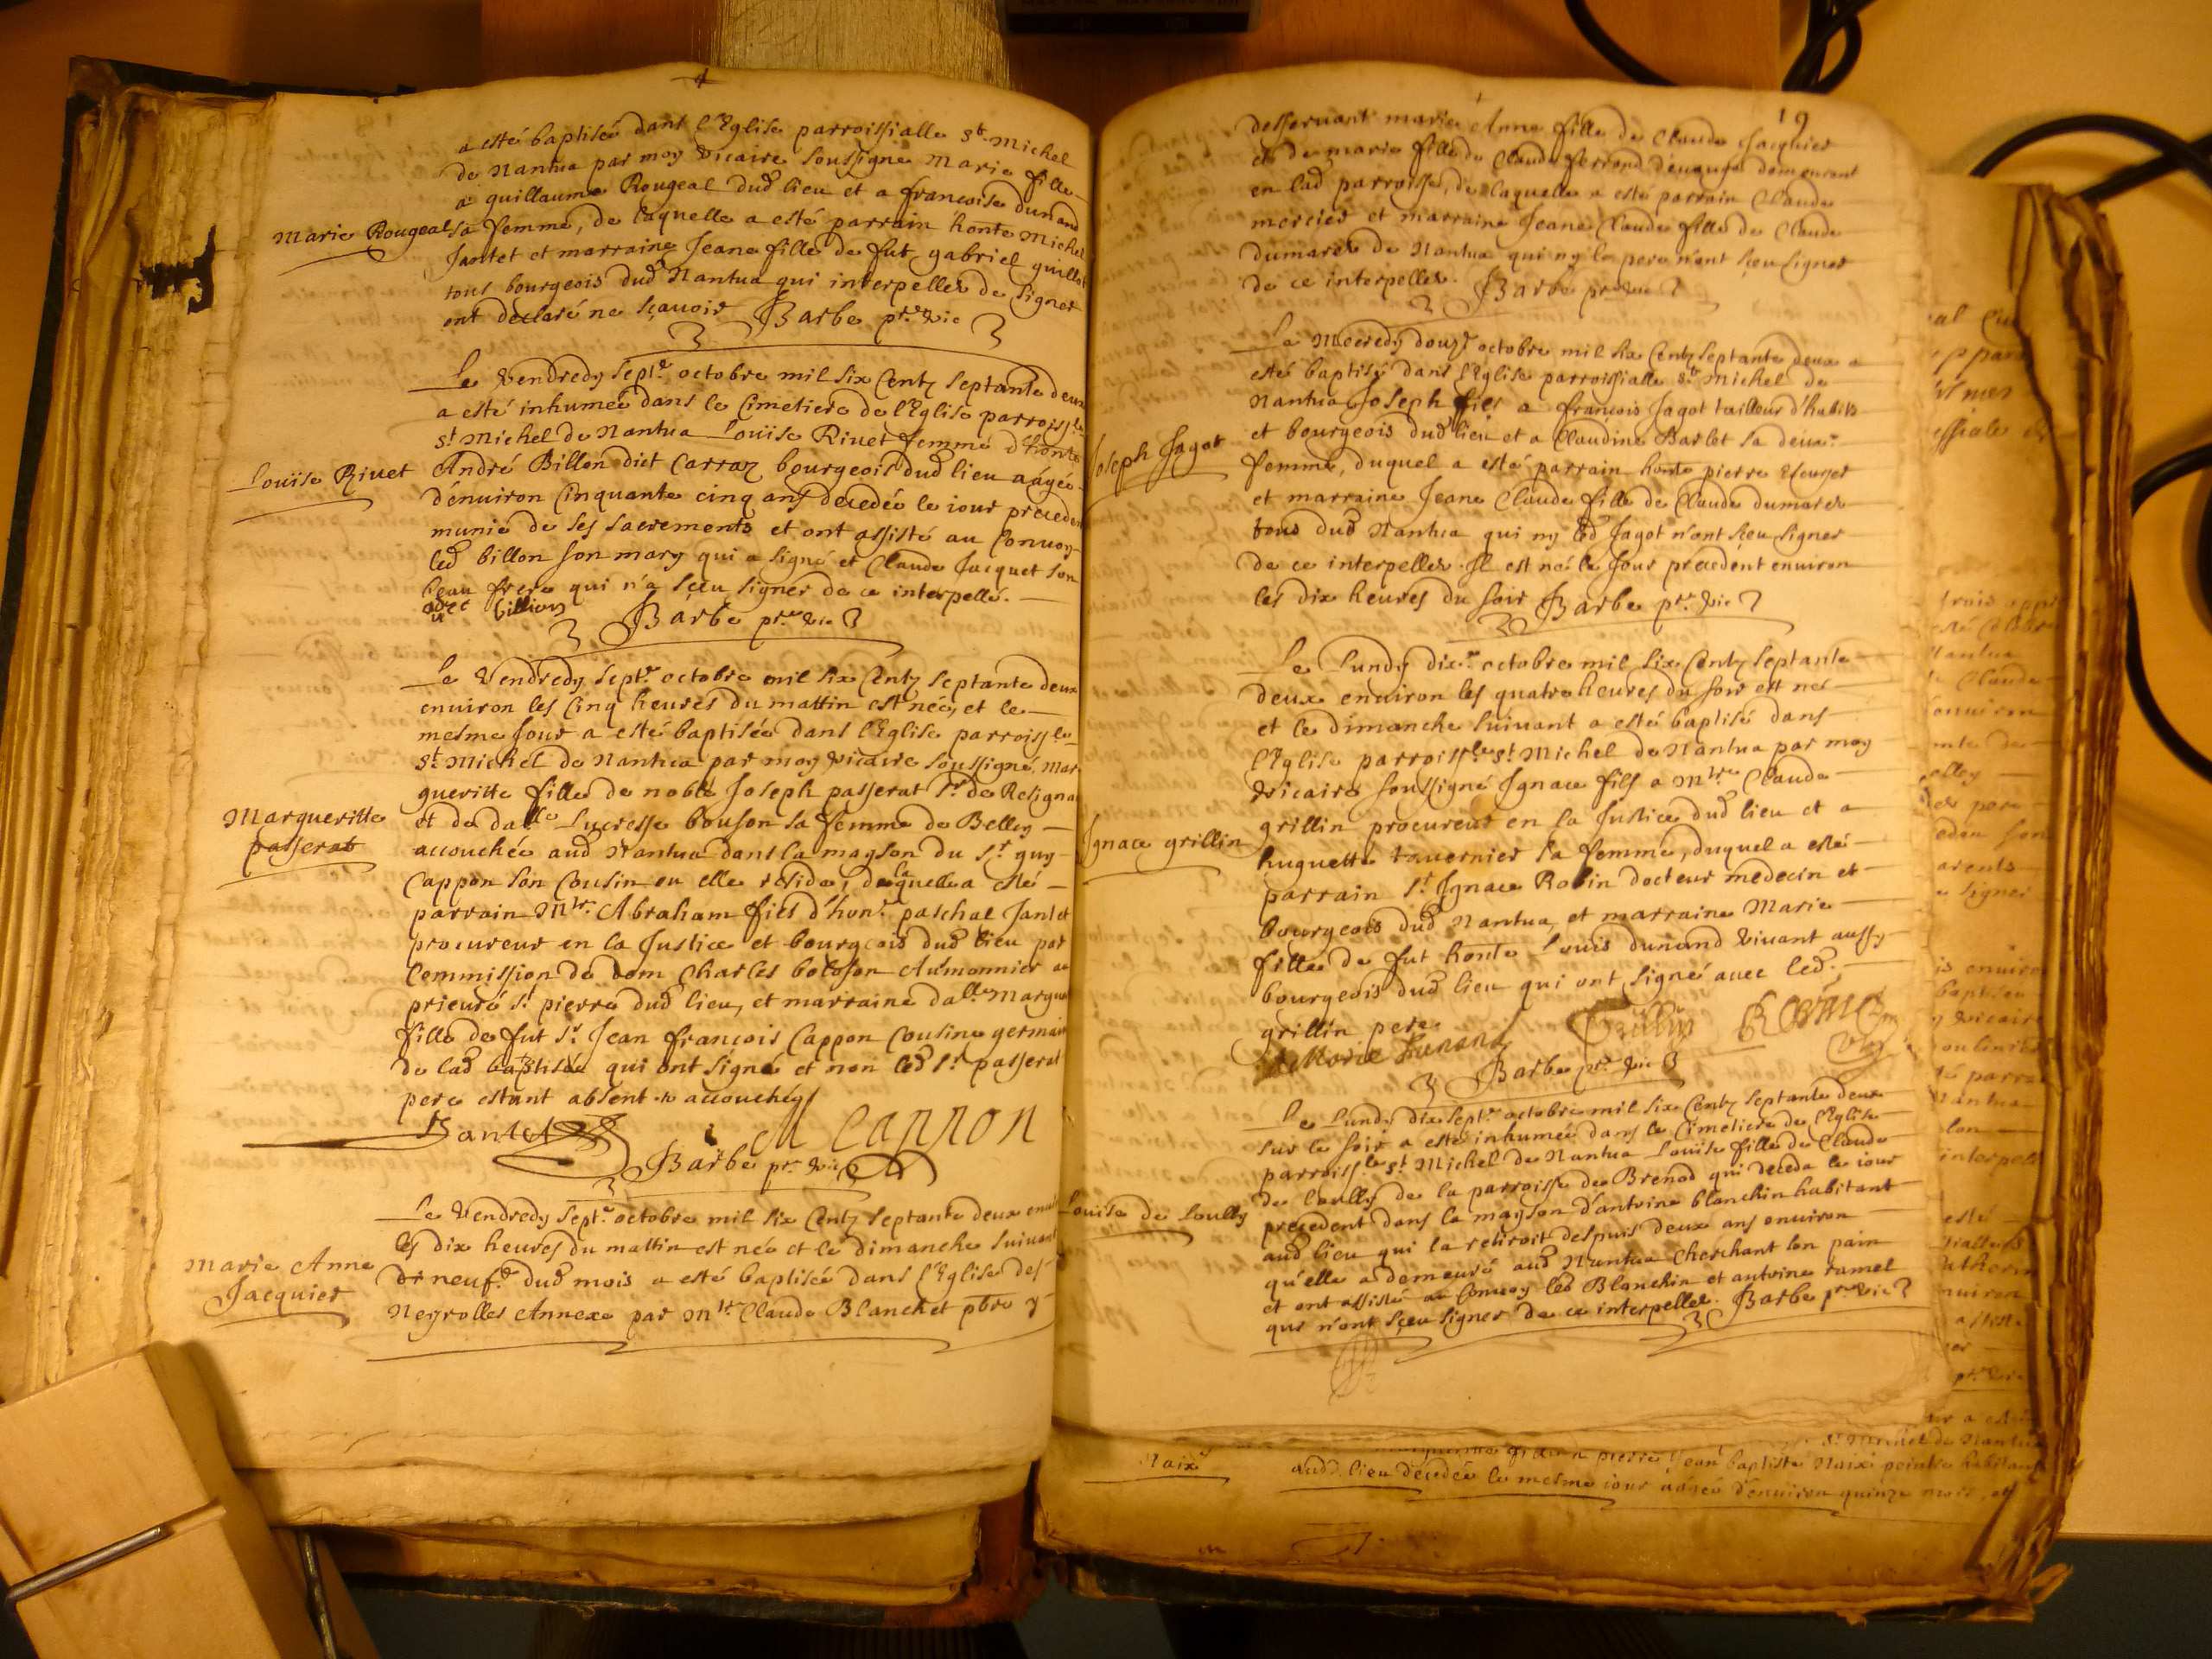 a esté baptisée dans l'Eglise parroissialle St Michel
de Nantua par moy vicaire soussigné Marie fille
a guillaume Rougeal dud lieu et a francoise dunand
Marie Rougeal
sa femme, de laquelle a esté parrain honte Michel
Jantet et marraine Jeane fille de fut gabriel guillot
tous bourgeois dud Nantua qui interpelles de signer
ont declaré ne sçavoir Barbe ptre vic
Le Vendredy septe octobre mil six Centz septante deux
a esté inhumée dans le Cimetiere de l'Eglise parroissle
St Michel de Nantua Louïse Rivet femme d'honte
Louïse Rivet
André Billon dict Carraz bourgeois dud lieu aagée
d'enuiron Cinquante cinq ans decedée le iour preceden
munie de ses sacrements et ont assisté au Conuoy
led billon son mary qui a signé et Claude Jacquet son
beau frere qui n'a sçeu signer de ce interpellé.
billion
Barbe ptre vic
Le Vendredy septe octobre mil six Centz septante deux
enuiron les Cinq heures du mattin est née, et le
mesme Jour a esté baptisée dans l'Eglise parroissle
St Michel de Nantua par moy vicaire soussigné Mar
gueritte fille de noble Joseph passerat Sr de Rosigna
Margueritte
passerat
et de dalle Lucresse bouson sa femme de Belley
accouchée aud Nantua dans la mayson du Sr guy
Cappon son Cousin ou elle reside, de laquelle a esté
parrain Mtre Abraham fils d'hone paschal Jantet
procureur en la Justice et bourgeois dud lieu par
Commission de dom Charles boloson Aumonnier au
prieuré St pierre dud lieu, et marraine dalle Margue
fille de fut Sr Jean francois Cappon Cousine germain
de lad baptisée qui ont signé et non led Sr passerat
pere estant absent accouchés
Jantet M Cappon
Barbe ptre vic
Le Vendredy septe octobre mil six Centz septante deux enui
les dix heures du mattin est née et le dimanche suiuant
Marie Anne
Jacquier
neufe dud mois a esté baptisée dans l'Eglise des
Neyrolles Annexe par Mtre Claude Blanchet pbre y
19
desseruant marie Anne fille de Claude Jacquier
et de marie fille de Claude ferrond demeurant
en lad parroisse, de laquelle a esté parrain Claude
mercier et marraine Jeane Claude fille de Claude
dumarex de Nantua qui ny le pere n'ont sçeu signer
de ce interpelles. Barbe ptre vic
Le Mecredy douze octobre mil six Centz septante deux a
esté baptisé dans l'Eglise parroissialle St Michel de
Nantua Joseph fils a francois Jagot tailleur d'habits
Joseph Jagot
et bourgeois dud lieu et a Claudine Barlet sa deuxe
femme, duquel a esté parrain honte pierre
et marraine Jeane Claude fille de Claude dumarex
tous dud Nantua qui ny led Jagot n'ont sçeu signer
de ce interpelles. Il est né le Jour precedent enuiron
les dix heures du soir Barbe ptre vic
Le Lundy dixe octobre mil six Centz septante
deux enuiron les quatre heures du soir est né
et le dimanche suiuant a esté baptisé dans
l'Eglise parroissle St Michel de Nantua par moy
vicaire soussigné Ignace fils a Mtre Claude
Ignace grillin
grillin procureur en la Justice dud lieu et a
huguette tauernier sa femme, duquel a esté
parrain Sr Ignace Robin docteur medecin et
bourgeois dud Nantua, et marraine Marie
fille de fut honte Louis dunand viuant aussy
bourgeois dud lieu qui ont signé auec led
grillin pere
Marie dunand Grillin Robin
Barbe ptre vic
Le Lundy dix septe octobre mil six Centz septante deux
sur le soir a esté inhumée dans le Cimetiere de l'Eglise
parroissle St Michel de Nantua Louïse fille de Claude
Louïse de Loully
de Loully de la parroisse de Brenod qui deceda le iour
precedent dans la mayson d'antoine blanchin habitant
aud lieu qui la retiroit despuis deux ans enuiron
qu'elle a demeuré aud Nantua Cherchant son pain
et ont assisté au Conuoy led Blanchin et antoine ramel
qui n'ont sçeu signer de ce interpelles. Barbe ptre vic
Naix
pierre Jean baptiste Naix peintre habitant
aud lieu decedée le mesme iour aagée d'enuiron quinze mois, et